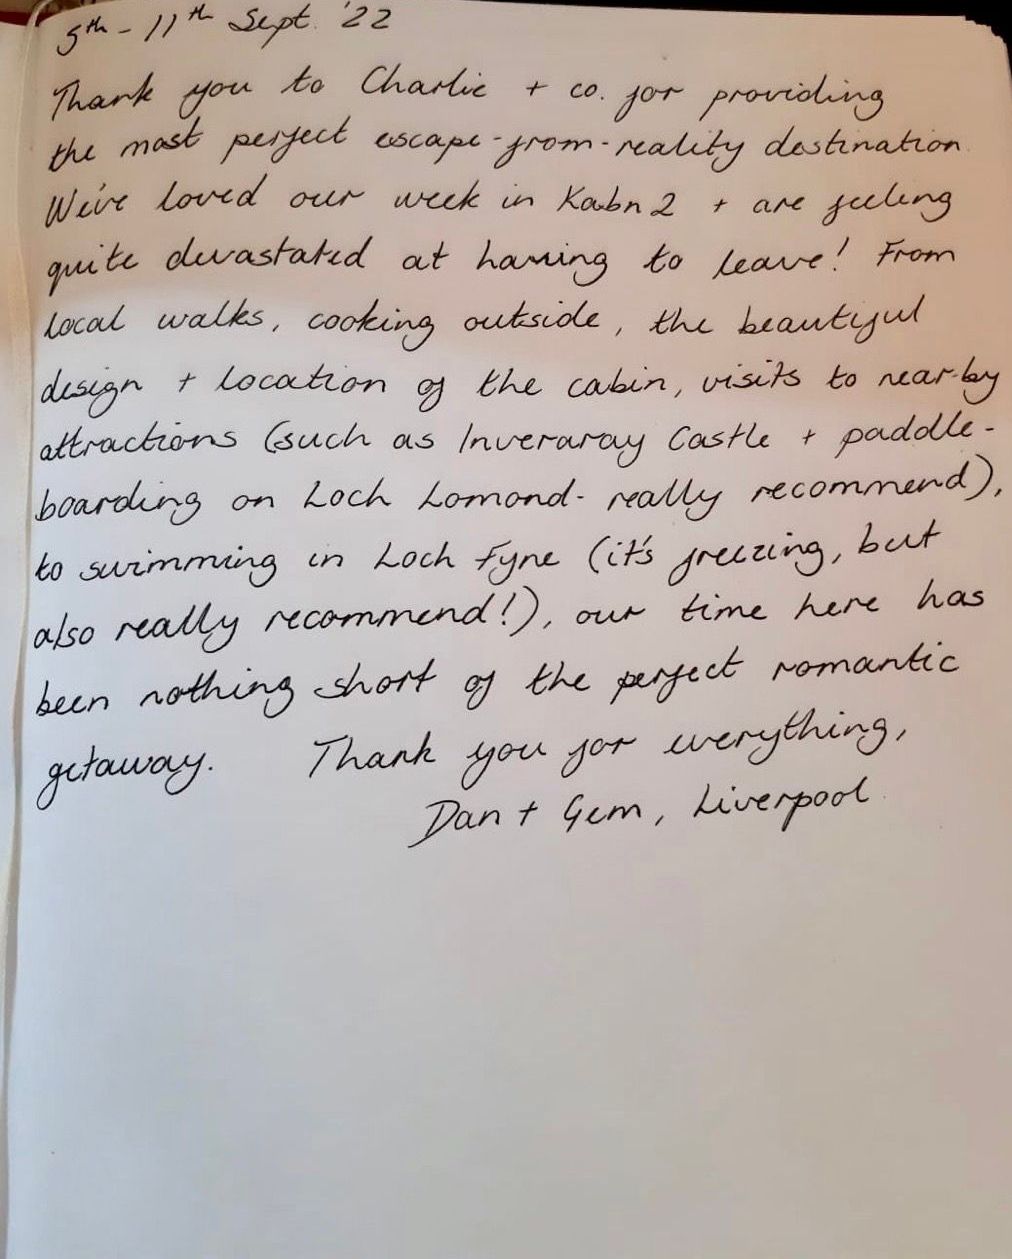 5th - 11th Sept. '22
Thank you to Charlie + co. for providing
the most perfect escape-from-reality destination.
We've loved our week in Kabn 2 + are feeling
quite devastated at having to leave! From
local walks, cooking outside, the beautiful
design + location of the cabin, visits to near-by
attractions (such as Inveraray Castle + paddle-
boarding on Loch Lomond - really recommend),
to swimming in Loch Fyne (it's freezing, but
also really recommend!), our time here has
been nothing short of the perfect romantic
getaway. Thank you for everything,
Dan + Gem, Liverpool.